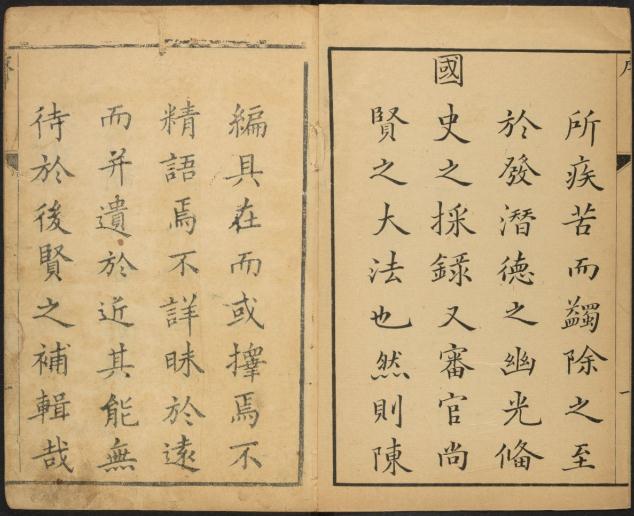 所疾苦而蠲除之至
於發潛德之幽光俻
國史之採錄又審官尚
賢之大法也然則陳
編具在而或擇焉不
精語焉不詳昧於遠
而并遺於近其能無
待於後賢之補輯哉